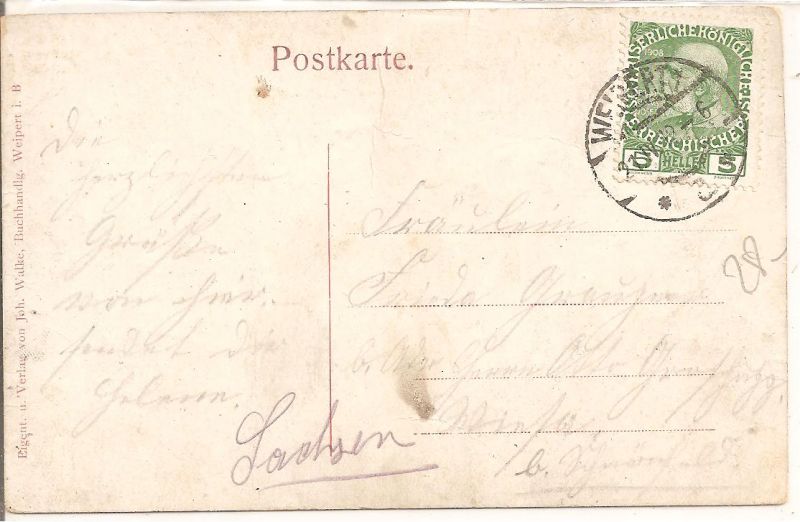 Postkarte.
KAISERLICHE KÖNIGLICHE
1908
ÖSTERREICHISCHE
5 HELLER 5
WEIPERT
Die
herzlichsten
Grüße
von hier
sendet die
Helene.
Fräulein
Frieda
b. Herrn Otto
b.
Sachsen
28.-
Eigent. u. Verlag von Joh. Walke, Buchhandlg. Weipert i. B